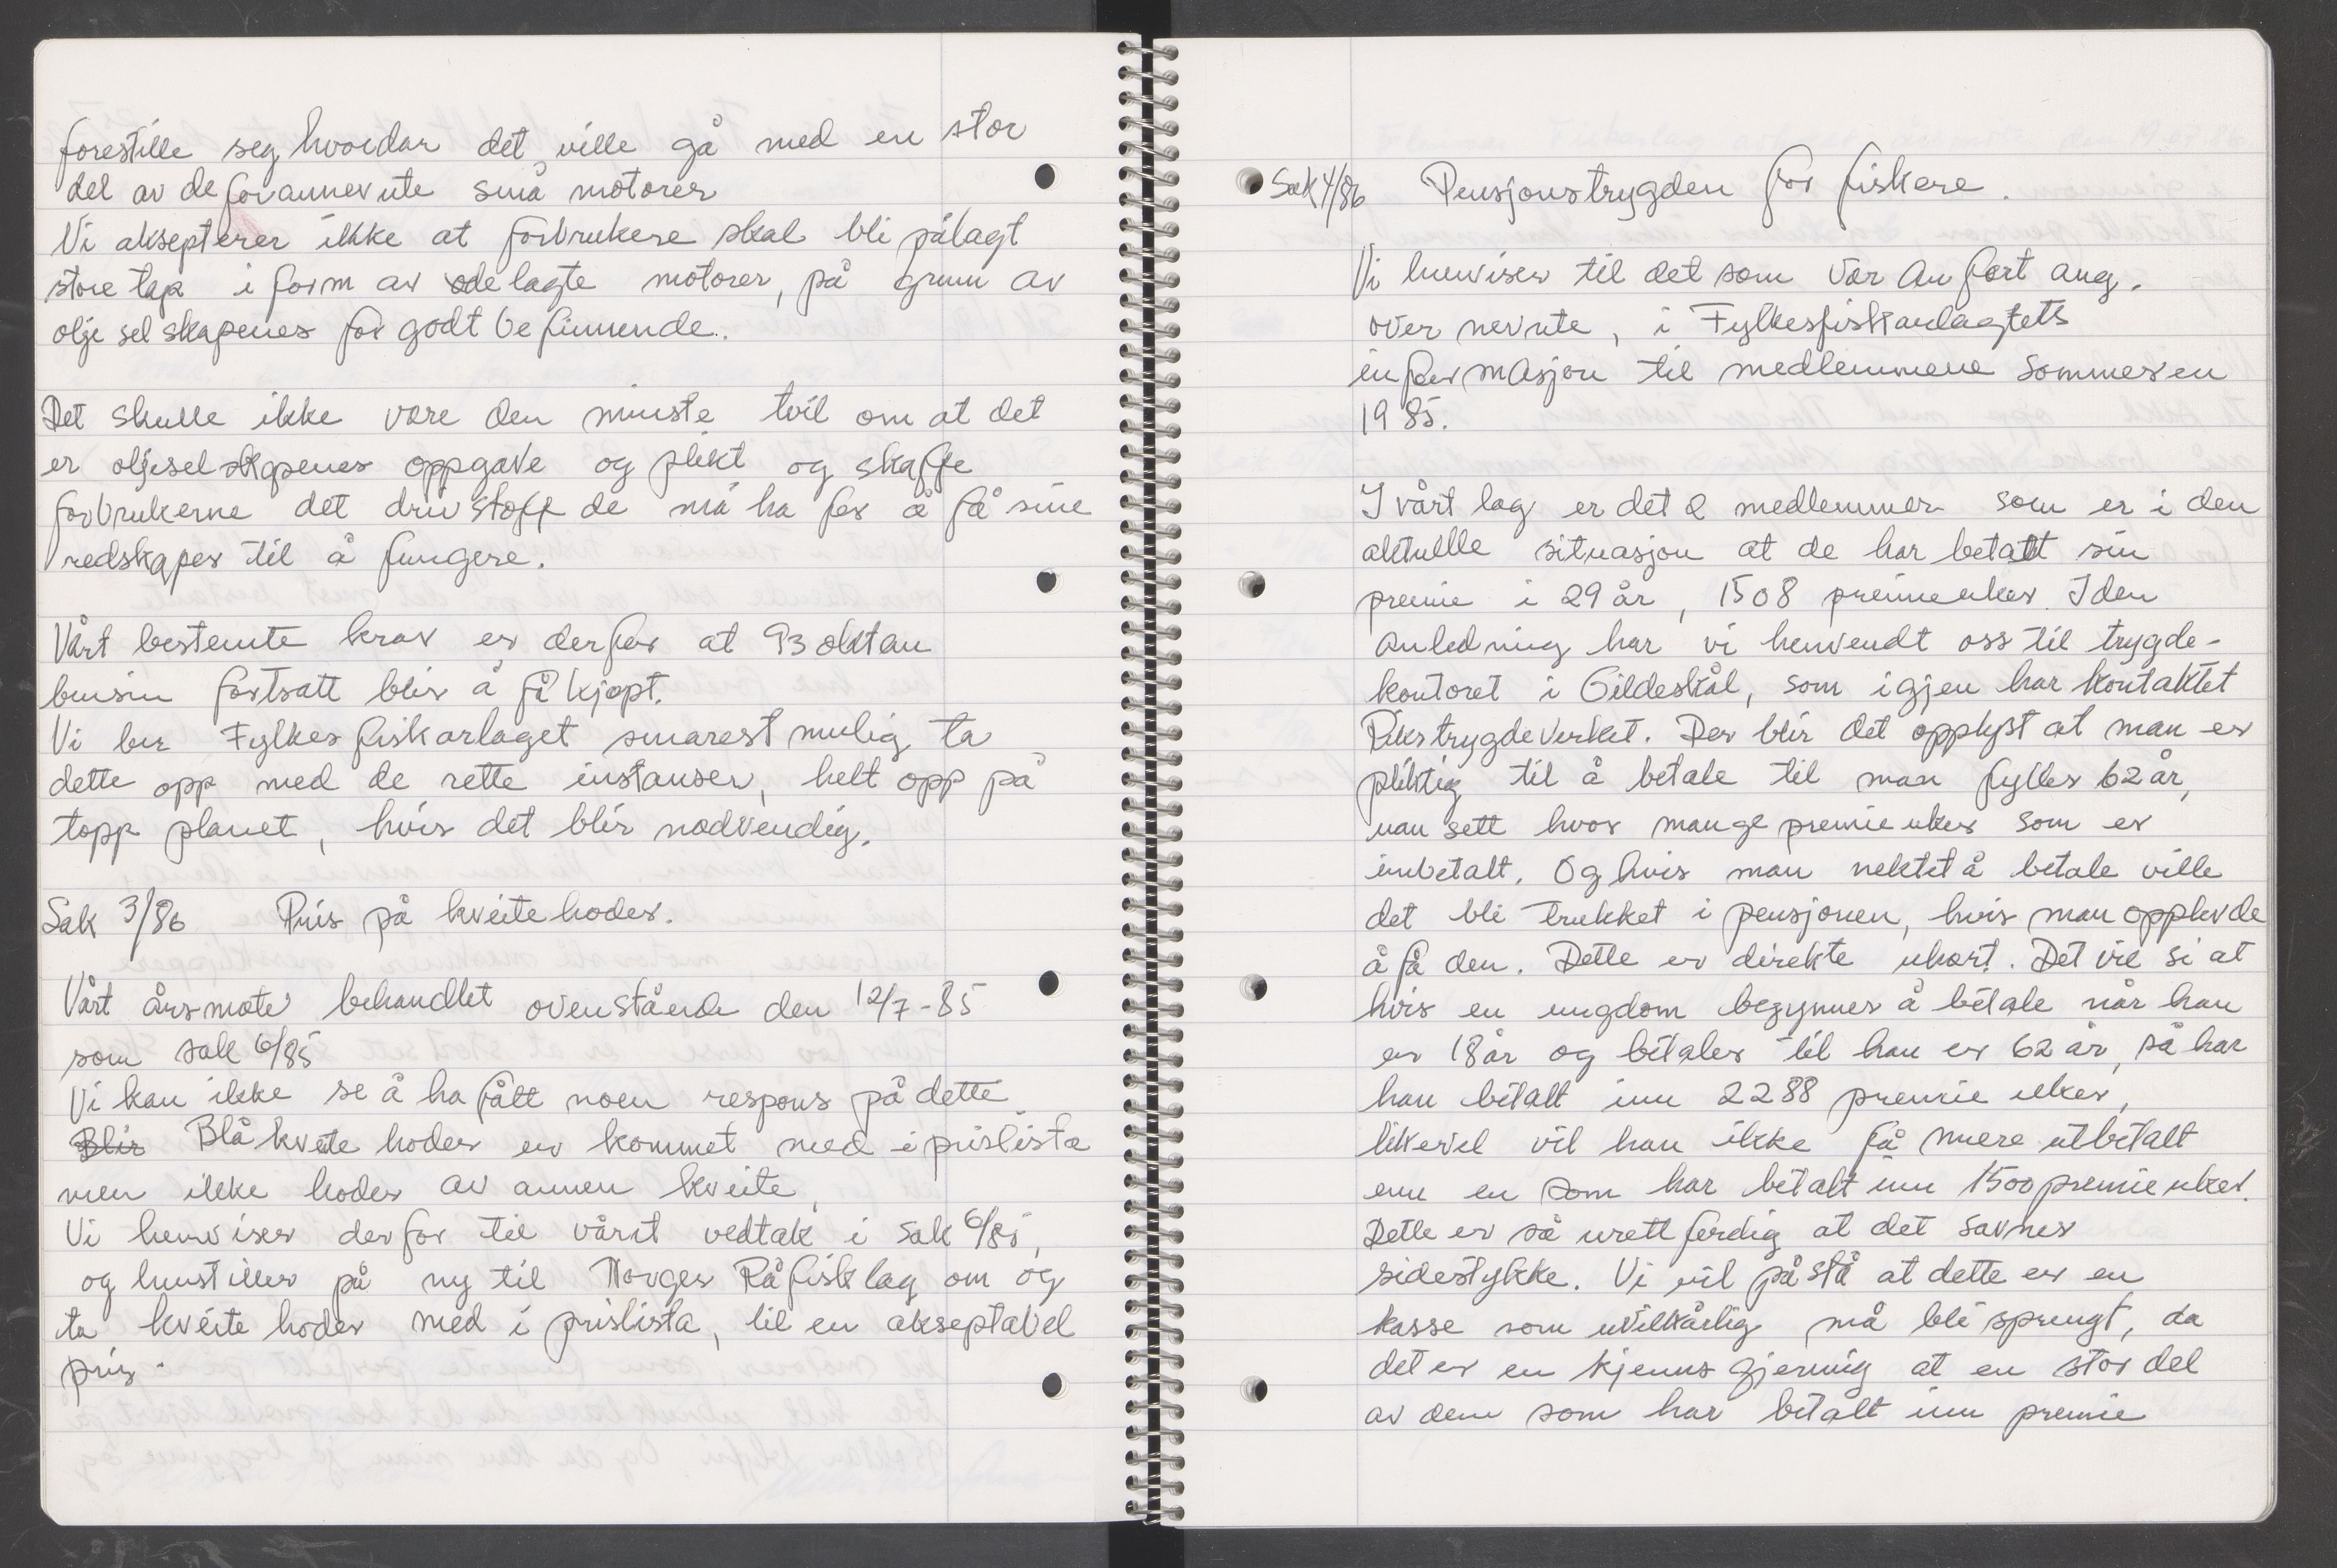 forestille seg hvordan det ville gå med en stor
del av de forannevnte små motorer
Vi aksepterer ikke at forbrukere skal bli pålagt
store tap i form av ødelagte motorer, på grunn av
olje selskapenes for godt befinnende.
Det skulle ikke være den minste tvil om at det
er oljeselskapenes oppgave og plikt og skaffe
forbrukerne det drivstoff de må ha for å få sine
redskaper til å fungere.
Vårt bestemte krav er derfor at 93 oktan
bensin fortsatt blir å få kjøpt.
Vi ber Fylkesfiskarlaget snarest mulig ta
dette opp med de rette instanser, helt opp på
topp planet, hvis det blir nødvendig.
Sak 3/86 Pris på kveitehoder.
Vårt årsmøte behandlet ovenstående den 12/7-85
som sak 6/85
Vi kan ikke se å ha fått noen respons på dette
Blir Blåkveite hoder er kommet med i prislista
men ikke hoder av annen kveite,
Vi henviser derfor til vårt vedtak i sak 6/85,
og henstiller på ny til Norges Råfisklag om og
ta kveite hoder med i prislista, til en akseptabel
pris.
Sak 4/86 Pensjonstrygden for fiskere.
Vi henviser til det som var anført ang.
over nevnte, i Fylkesfiskarlagtets
informasjon til medlemmene sommeren
1985.
I vårt lag er det 2 medlemmer som er i den
aktuelle situasjon at de har betalt sin
premie i 29 år, 1508 premieuker. I den
anledning har vi henvendt oss til trygde-
kontoret i Gildeskål, som igjen har kontaktet
Rikstrygdeverket. Der blir det opplyst at man er
pliktig til å betale til man fylles 62 år,
uan sett hvor mange premie uker som er
innbetalt. Og hvis man nektet å betale ville
det bli trukket i pensjonen, hvis man opplevde
å få den. Dette er direkte uhørt. Det vil si at
hvis en ungdom begynner å betale når han
er 18 år og betaler til han er 62 år, så har
han betalt inn 2288 premie uker,
likevel vil han ikke få mere utbetalt
enn en som har betalt inn 1500 premie uker.
Dette er så urettferdig at det savner
sidestykke. Vi vil påstå at dette er en
kasse som uvilkårlig må bli sprengt, da
det er en kjenns gjerning at en stor del
av dem som har betalt inn premie